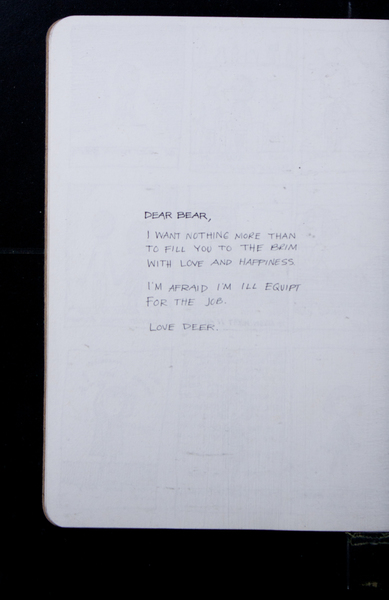 DEAR BEAR,
I WANT NOTHING MORE THAN
TO FILL YOU TO THE BRIM
WITH LOVE AND HAPPINESS
I'M AFRAID I'M ILL EQUIPT
FOR THE JOB.
LOVE DEER.